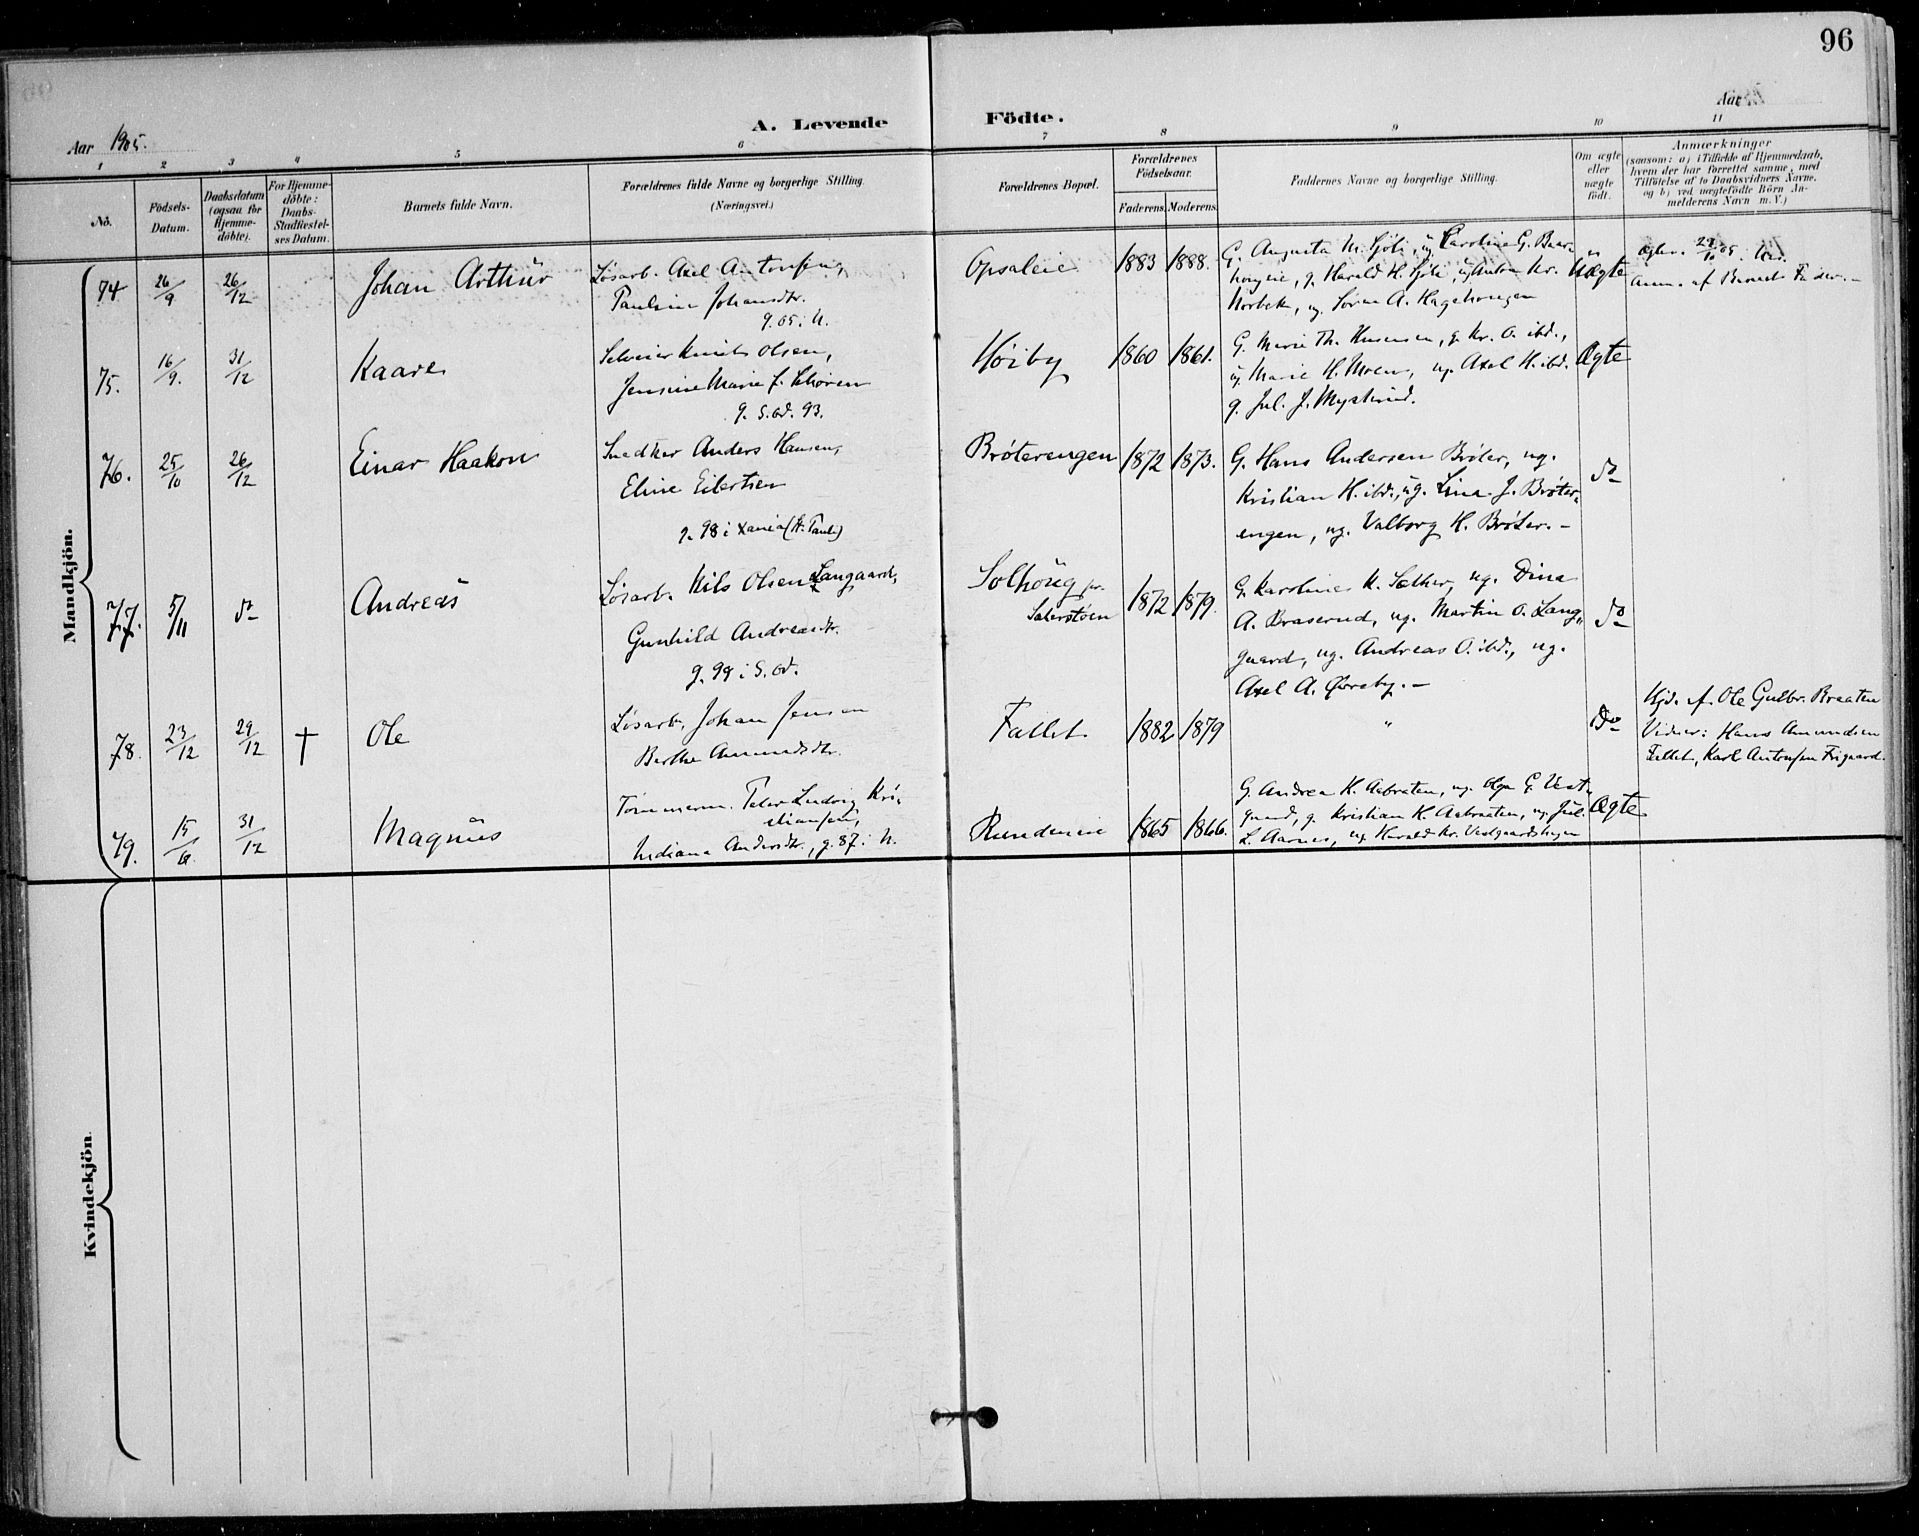 96
Aar 1905.
A. Levende Födte.
Aar
1 2 3 4 5 6 7 8 9 10 11
No.
Födsels-
Datum.
Daabsdatum
(ogsaa for
Hjemme-
döbte).
For Hjemme-
döbte:
Daabs-
Stadfæstel-
ses Datum.
Barnets fulde Navn.
Forældrenes fulde Navne og borgerlige Stilling.
(Næringsvei.)
Forældrenes Bopæl.
Forældrenes
Födselsaar.
Faderens. Moderens.
Faddernes Navne og borgerlige Stilling.
Om ægte
eller
uægte
födt.
Anmærkninger
(saasom: a) i Tilfælde af Hjemmedaab,
hvem der har forrettet samme, med
Tilföielse af to Daabsvidners Navne,
og b) ved uægtefödte Börn An-
melderens Navn m. V.)
Mandkjön.
74 26/9 26/12 Johan Arthur
Løsarb. Axel Antonsen,
Pauline Johansdtr.
g. 05 i U.
Opsaleie 1883 1888.
G. Augusta M. Sjöli, ug. Caroline G. Baar-
haugeie, g. Harald H. Sjöli, ug. Anton Kr.
Norbek, ug. Soren A. Hagehougen
Uægte
29/10 05.
Anm. af Barnets Fader.-
75. 16/9. 31/12 Kaare
Knut Olsen,
Jensine Marie f. Schøren
g. S. Od. 93.
Høiby 1860 1861.
G. Marie Th. Hansen, g. Kr. O. ibd.,
ug. Marie H. Moen, ug. Axel H. ibd.
g. Jul. J. Mystrud.
Ægte
76. 25/10 26/12 Einar Haakon
Snedker Anders Hansen,
Eline Eilertsen
g. 98 i Xania (St. Pauli)
Brøterengen 1872 1873.
G. Hans Andersen Brøter, ug.
Kristian H. ibd., ug. Lina J. Brøter-
engen, ug. Valborg H. Brøter.-
do
77. 5/11 do Andreas
Løsarb. Nils Olsen Langaard,
Gunhild Andreasdtr.
g. 99 i S. Od.
Solhöug pr.
Saterstøen 1872 1879.
G. Karoline K. Sæther, ug. Dina
A. Braserud, ug. Martin O. Lang-
gaard, ug. Andreas O. ibd., ug.
Axel A. Øvreby.-
do
78. 23/12 29/12 † Ole
Løsarb. Johan Jensen
Berthe Amundsdtr.
Fallet. 1882 1879
"
Do
Hjd. af Ole Gulbr. Braaten
Vidner: Hans Amundsen
Fallet, Karl Antonsen Frigaard.
79. 15/6 31/12 Magnus
Tømmerm. Peter Ludvig Kri-
stiansen,
Indiana Andersdtr., g. 87 i U.
Rundereie 1865 1866.
G. Andrea K. Aabraten, ug. Olga G. Vest-
gaard, g. Kristian K. Aabraaten, ug. Jul.
L. Aarnes, ug. Harald Kr. Vestgaardshagen
Ægte
Kvindekjön.